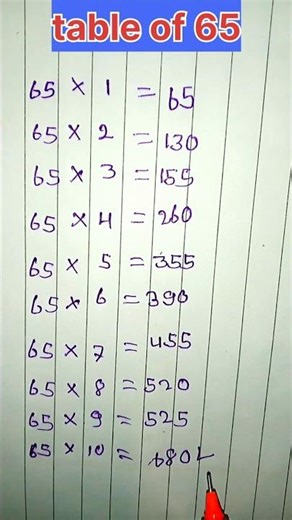 table of 65
65 × 1 = 65
65 × 2 = 130
65 × 3 = 155
65 × 4 = 260
65 × 5 = 355
65 × 6 = 390
65 × 7 = 455
65 × 8 = 520
65 × 9 = 525
65 × 10 =